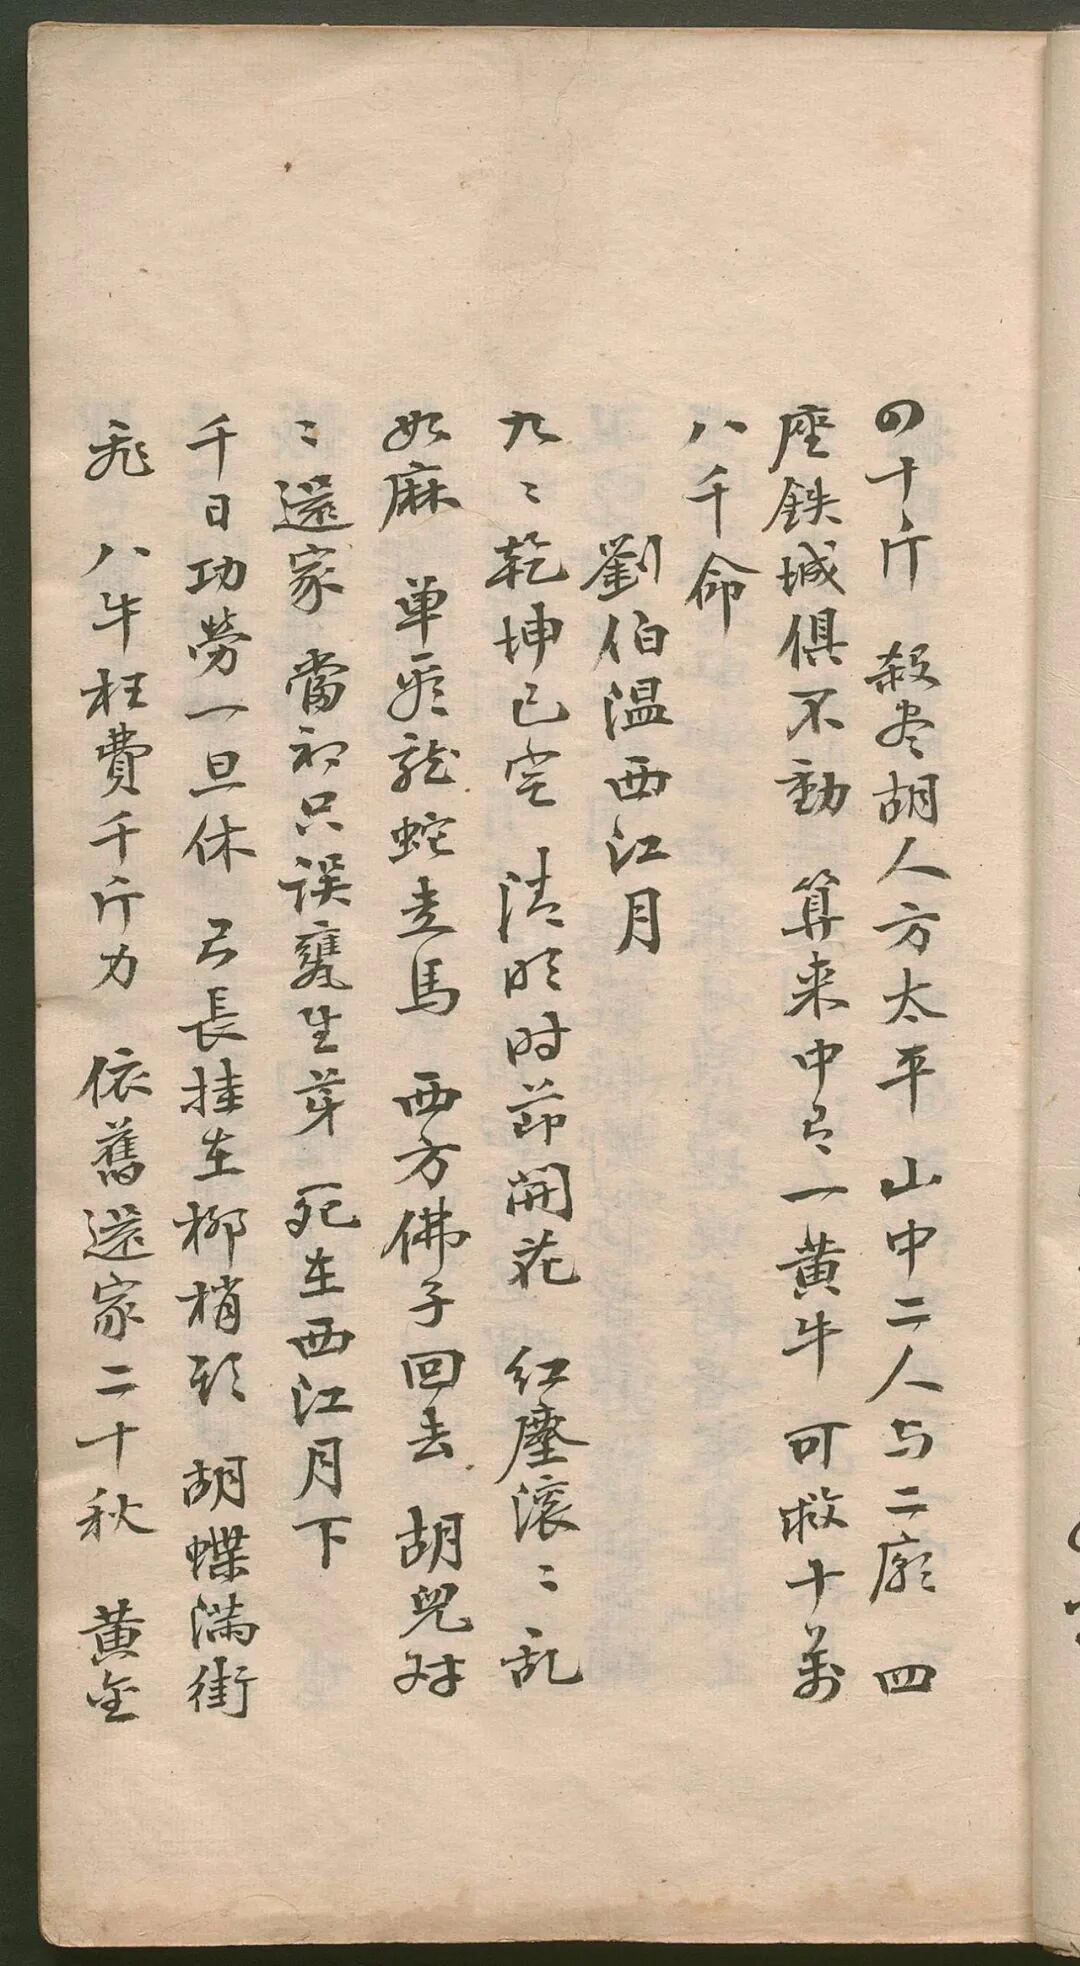 四十斤 殺尽胡人方太平 山中二人与二廟 四
座鉄城俱不動 算来中了一黄牛 可救十萬
八千命
劉伯温西江月
九〻乾坤已定 清明时節開花 红塵滚〻乱
如麻 单移龍蛇走馬 西方佛子回去 胡兒对
〻還家 當初只誤甕生芽 死在西江月下
千日功勞一旦休 弓長挂在柳梢頭 胡蝶满街
飛 八牛枉費千斤力 依舊還家二十秋 黄金